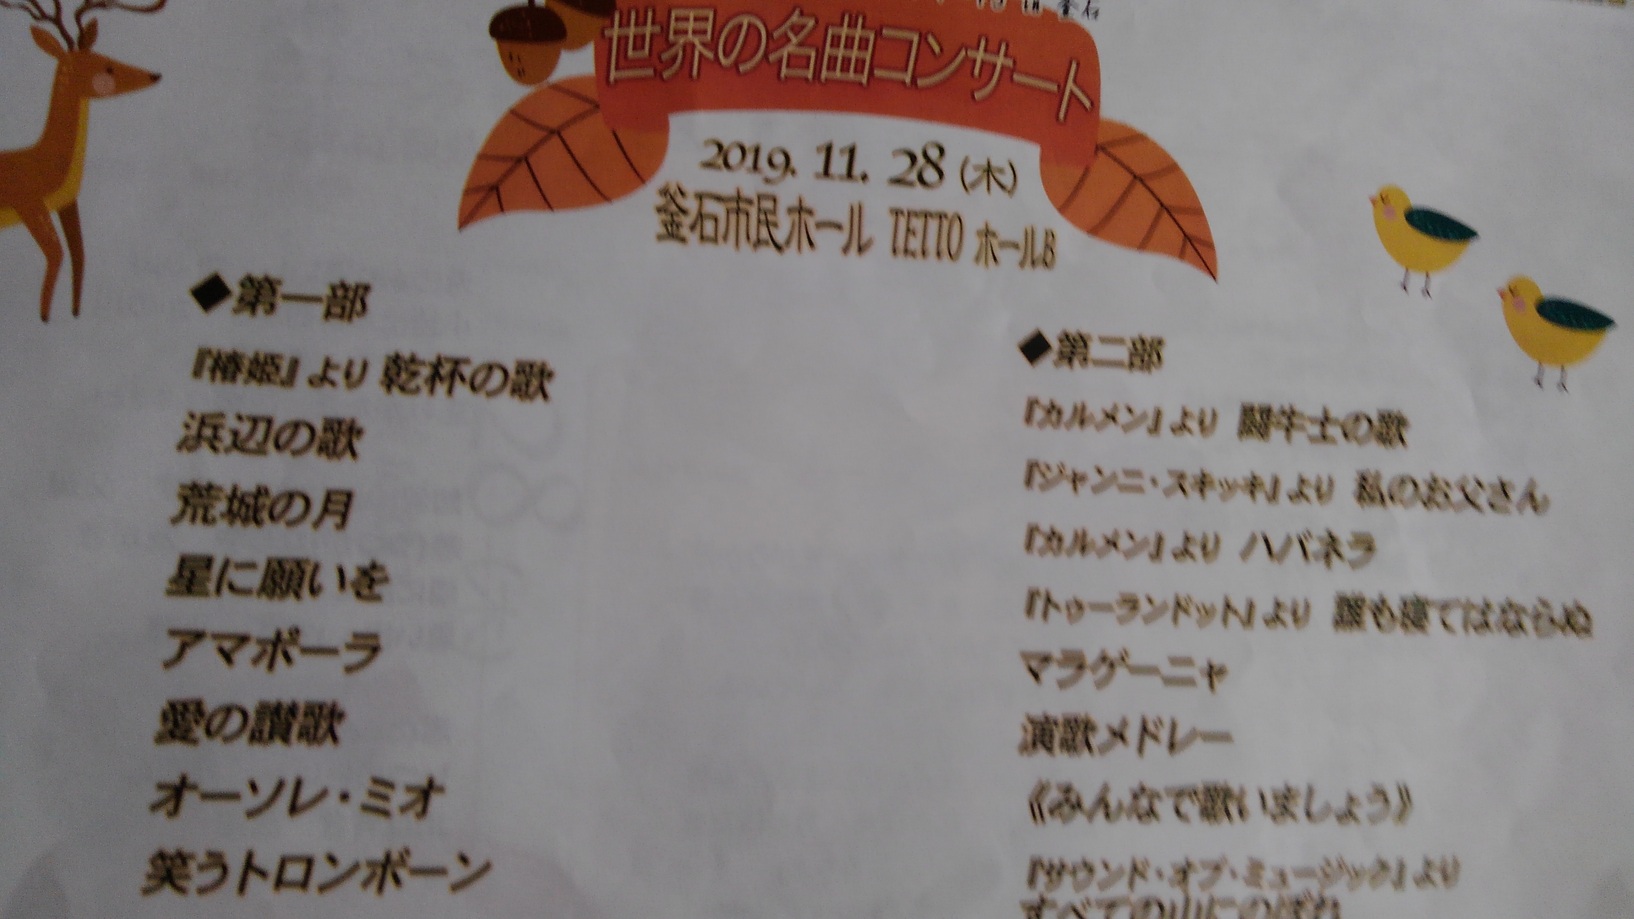 釜石
世界の名曲コンサート
2019. 11. 28 (木)
釜石市民ホール TETTO ホールB
◆第一部
『椿姫』より 乾杯の歌
浜辺の歌
荒城の月
星に願いを
アマポーラ
愛の讃歌
オーソレ・ミオ
笑うトロンボーン
◆第二部
『カルメン』より 闘牛士の歌
『ジャンニ・スキッキ』より 私のお父さん
『カルメン』より ハバネラ
『トゥーランドット』より 誰も寝てはならぬ
マラゲーニャ
演歌メドレー
《みんなで歌いましょう》
『サウンド・オブ・ミュージック』より
すべての山にのぼれ